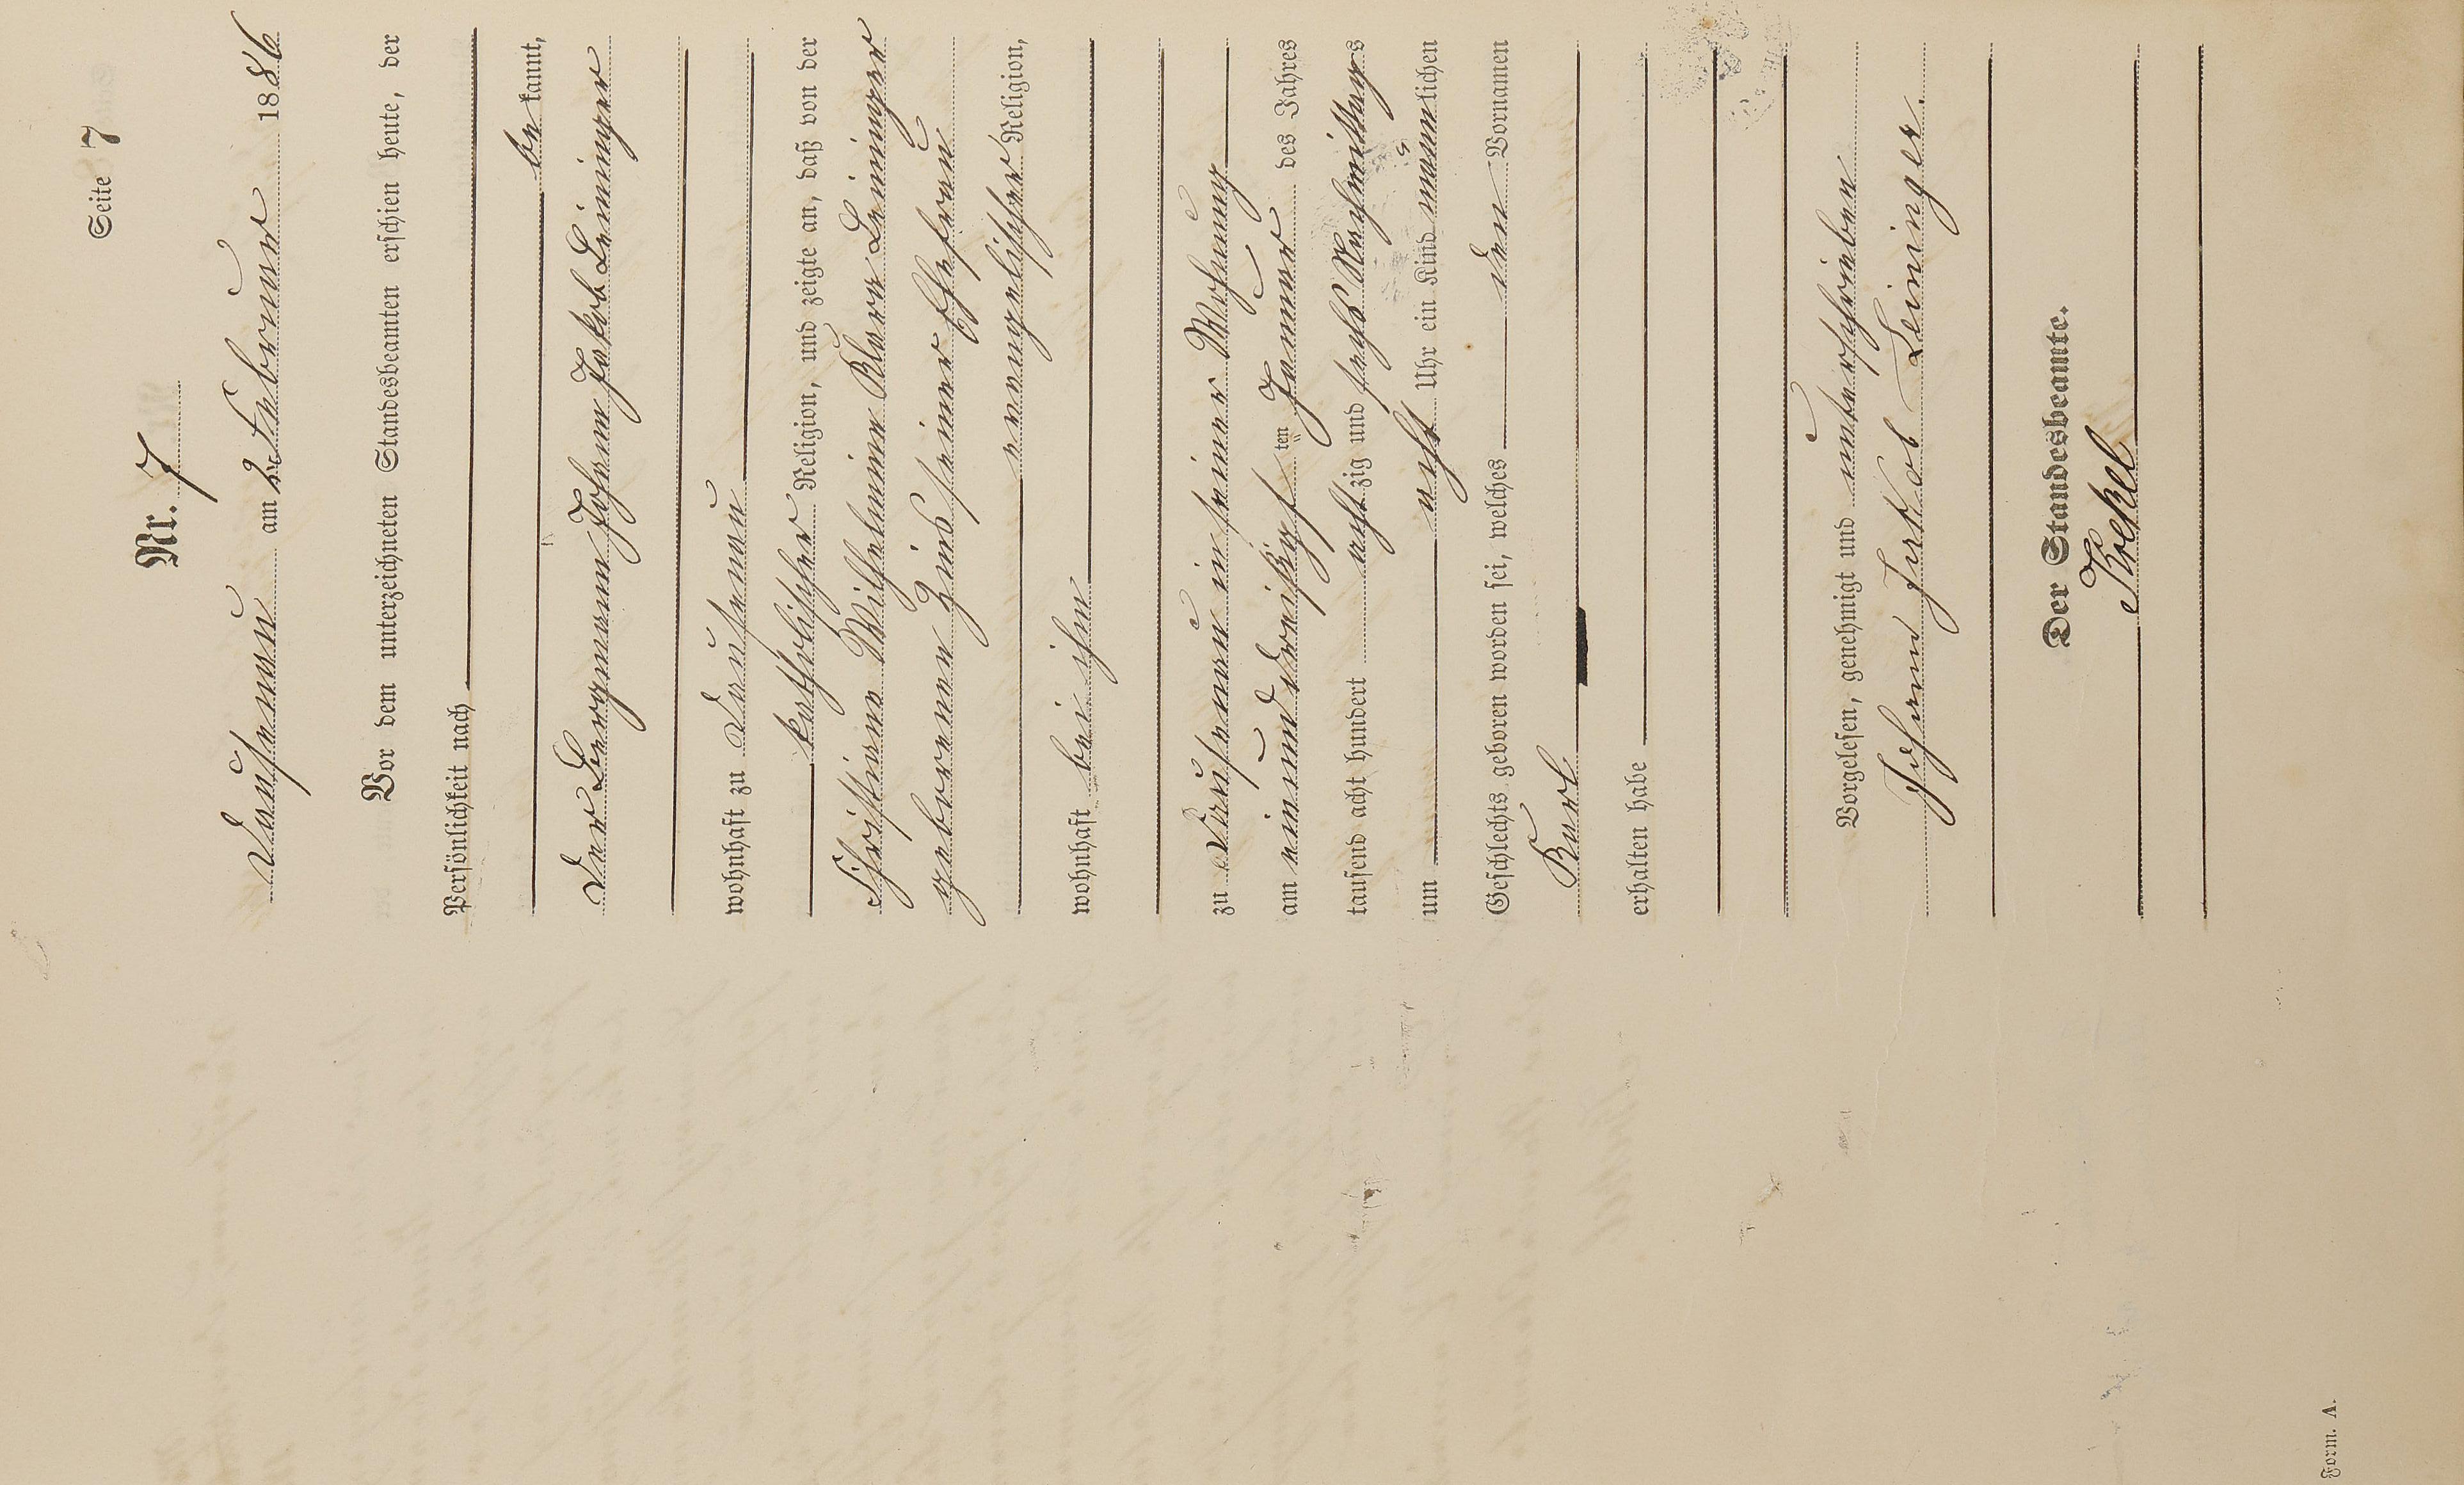 Seite 7
Nr. 7
Dausenau am 2. Februar 1886
Vor dem unterzeichneten Standesbeamten erschien heute, der
Persönlichkeit nach
be kannt,
der Bergmann Johann Jakob Leininger
wohnhaft zu Dausenau
katholischer Religion, und zeigte an, daß von der
Christiane Wilhelmine Klara Leininger
geborenen Zins seiner Ehefrau
evangelischer Religion,
wohnhaft bei ihm
zu Dausenau in seiner Wohnung
am einunddreißigs ten Januar des Jahres
tausend acht hundert achtzig und sechs Nachmittags
um acht Uhr ein Kind männlichen
Geschlechts geboren worden sei, welches den Vornamen
Karl
erhalten habe
Vorgelesen, genehmigt und unterschrieben
Johann Jakob Leininger.
Der Standesbeamte.
Form. A.